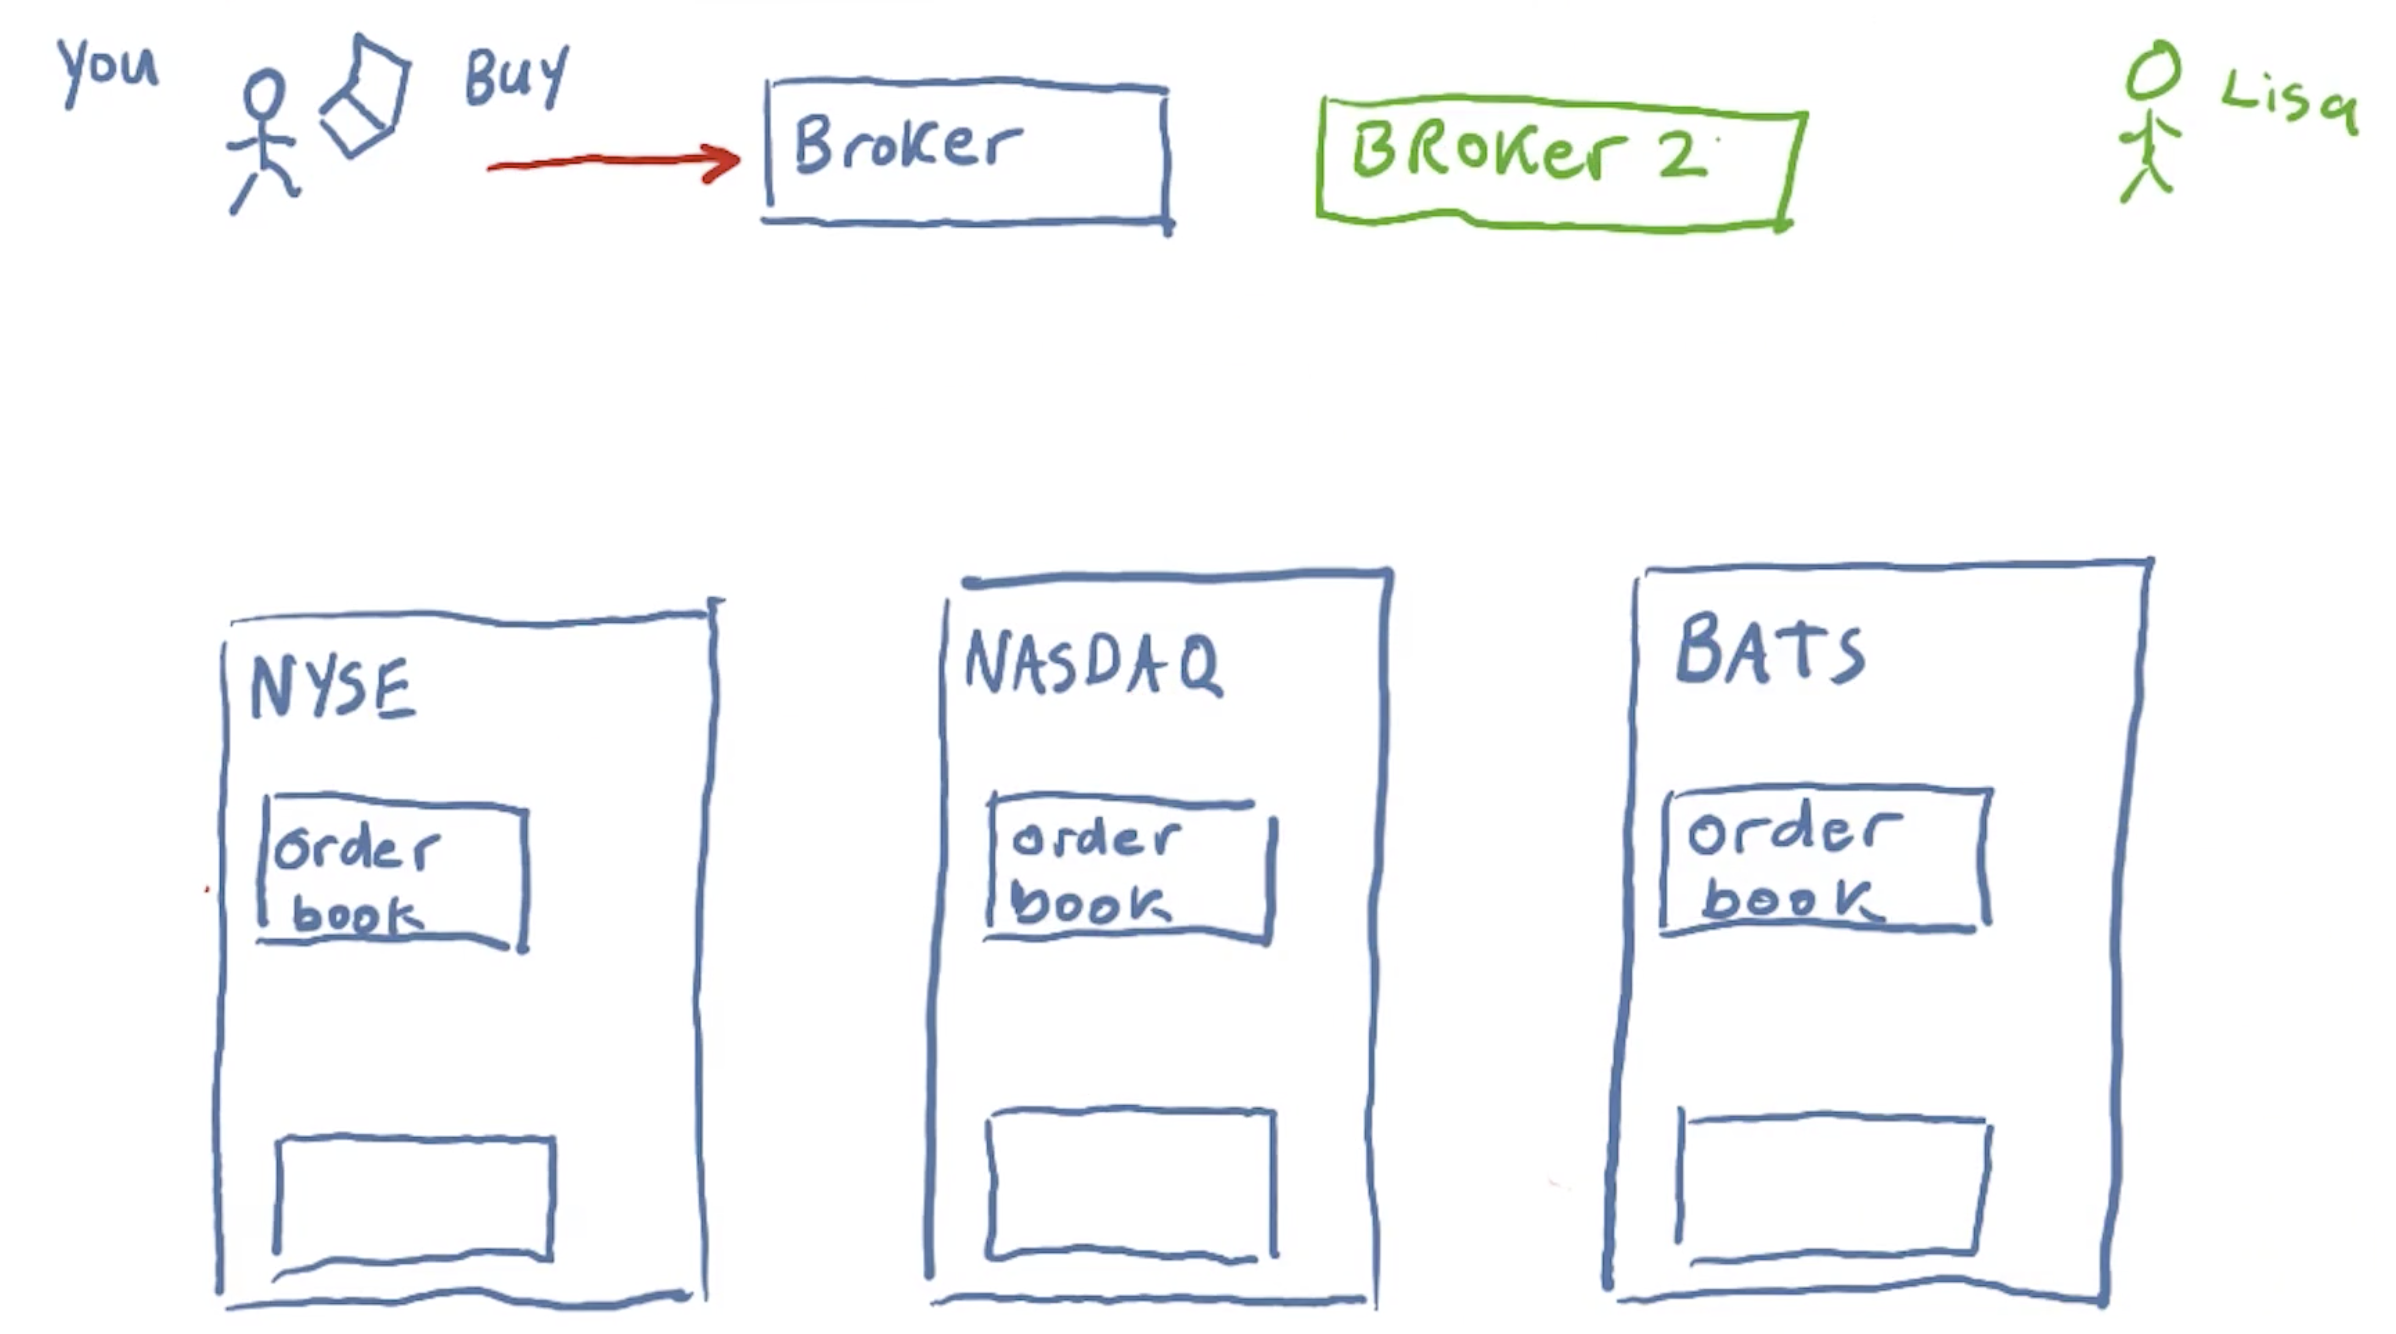 You
Buy
Broker
BROKer 2
Lisa
NYSE
order
book
NASDAQ
order
book
BATS
order
book